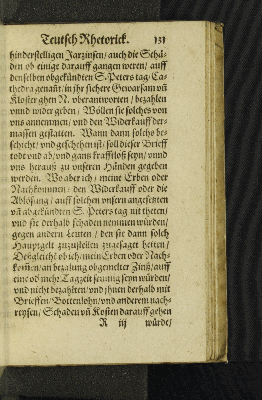 Teutsch Rhetorick. 131
hinderstelligen Jarzinsen/ auch die Schä-
den ob einige darauff gangen weren/ auff
denselben obgekündten S. Peters tag/ Ca-
thedra genañt/ in jhr sichere Gewarsam vñ
Kloster ghen N. vberantworten/ bezahlen
vnnd wider geben/ Wöllen sie solches von
vns annemmen/ vnd den Widerkauff der-
massen gestatten. Wann dann solchs be-
schicht/ vnd geschehen ist/ soll dieser Brieff
todt vnd ab/ vnd gans krafftloß seyn/ vnnd
vns herauß zu vnseren Handen gegeben
werden. Wo aber ich/ meine Erben oder
Nachkommen/ den Widerkauff oder die
Ablösung/ auff solchen vnsern angesenten
vñ abgekündten S. Peters tag nit theten/
vnd sie derhalb schaden nemmen würden/
gegen andern Leuten/ den sie dann solch
Hauptgelt zuzustellen zugesaget hetten/
Deßgleich/ ob ich/ mein Erben oder Nach-
kom̃en/ an bezalung obgemelter Zinß/ auff
eine od mehr Tagzeit seumig seyn würden/
vnd nicht bezahlten/ vnd jhnen derhalb mit
Brieffen/ Bottenlohn/ vnd anderem nach-
reysen/ Schaden vñ Kosten darauff gehen
R iij würde/